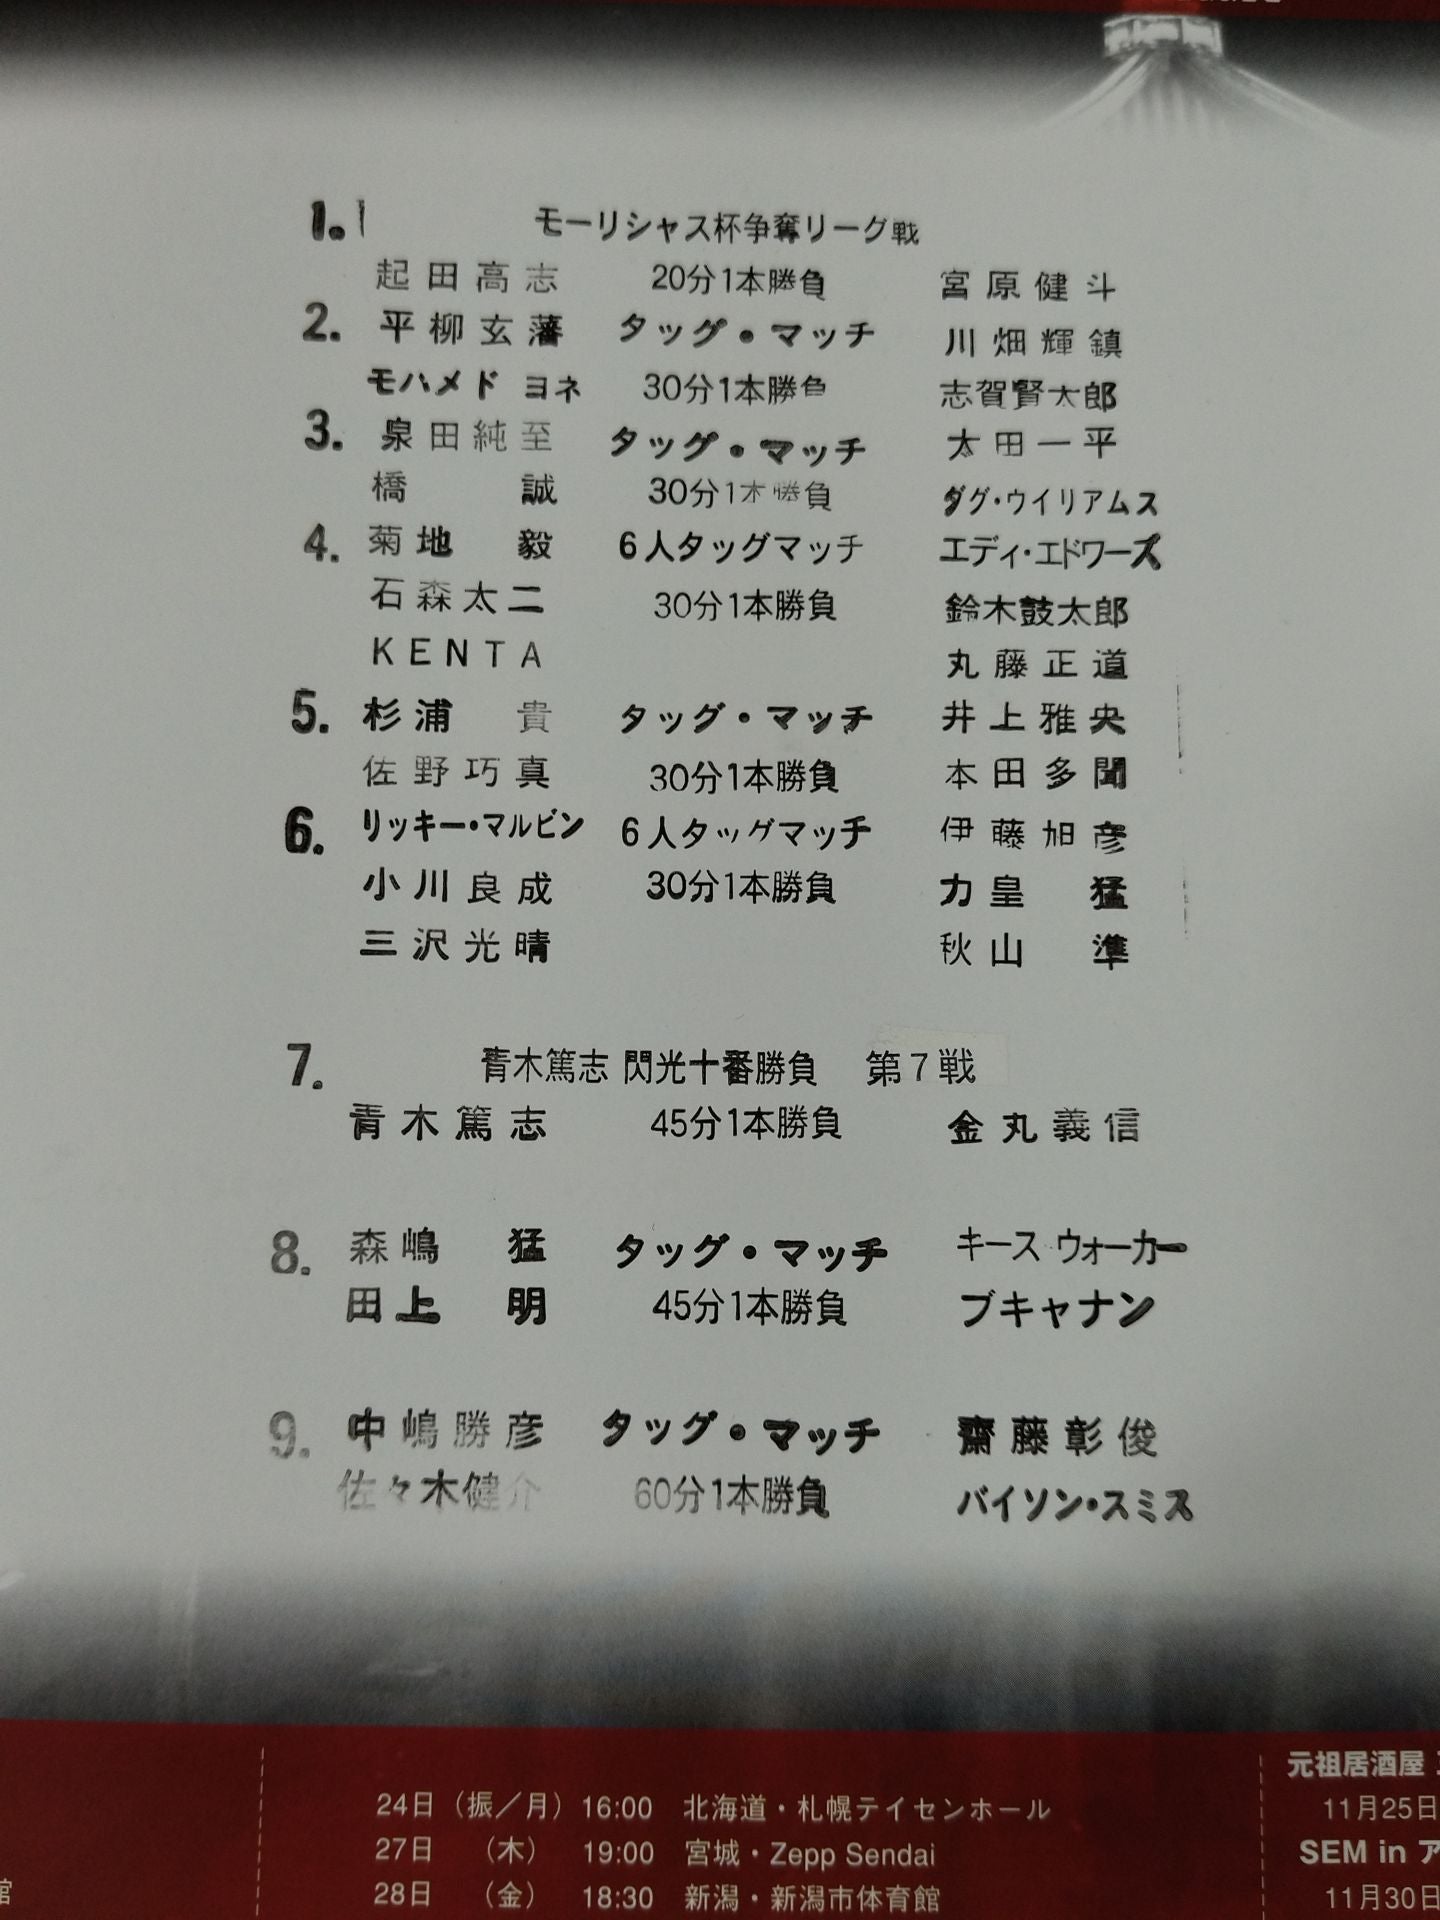 1.
モーリシャス杯争奪リーグ戦
起田高志 20分1本勝負 宮原健斗
2. 平柳玄藩 タッグ・マッチ 川畑輝鎮
モハメド ヨネ 30分1本勝負 志賀賢太郎
3. 泉田純至 タッグ・マッチ 太田一平
橋 誠 30分1本勝負 ダグ・ウイリアムス
4. 菊地 毅 6人タッグマッチ エディ・エドワーズ
石森太二 30分1本勝負 鈴木鼓太郎
KENTA 丸藤正道
5. 杉浦 貴 タッグ・マッチ 井上雅央
佐野巧真 30分1本勝負 本田多聞
6. リッキー・マルビン 6人タッグマッチ 伊藤旭彦
小川良成 30分1本勝負 力皇 猛
三沢光晴 秋山 準
7. 青木篤志 閃光十番勝負 第7戦
青木篤志 45分1本勝負 金丸義信
8. 森嶋 猛 タッグ・マッチ キース ウォーカー
田上 明 45分1本勝負 ブキャナン
9. 中嶋勝彦 タッグ・マッチ 齋藤彰俊
佐々木健介 60分1本勝負 バイソン・スミス
24日（振／月）16:00 北海道・札幌テイセンホール
27日（木）19:00 宮城・Zepp Sendai
28日（金）18:30 新潟・新潟市体育館
元祖居酒屋
11月25日
SEM in ア
11月30日
館